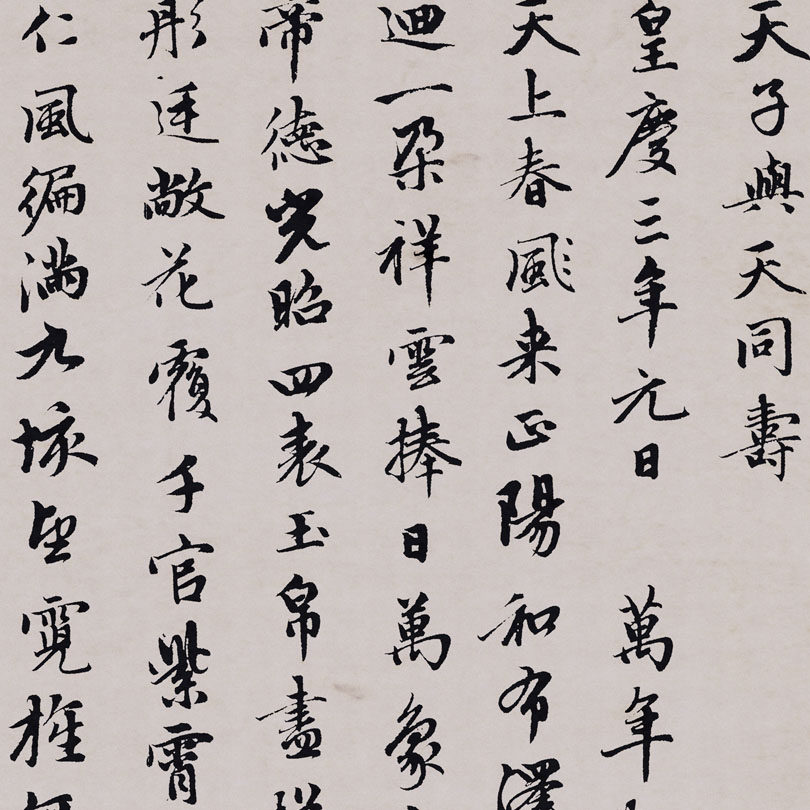 天子與天同壽
皇慶三年元日 萬年
天上春颩来正陽和布澤
迴一朵祥雲捧日萬象
帝德光昭四表玉帛盡
彤廷敞花覆千官紫霄
仁風徧滿九垓望霓旌